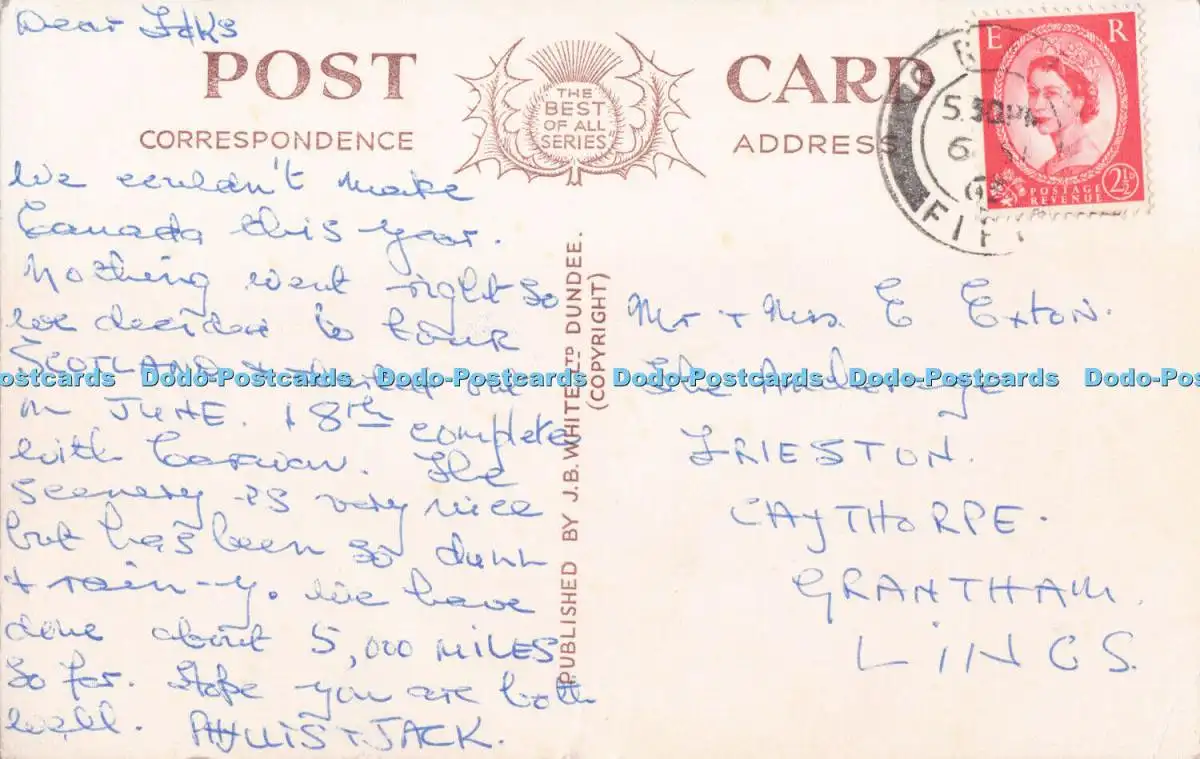 Dear Folks
POST CARD
THE
BEST
OF ALL
SERIES
CORRESPONDENCE
ADDRESS
E R
POSTAGE
REVENUE
2½D
5.30PM
6
FIFE
We couldn't make
Canada this year.
Nothing went right so
we decided to tour
SCOTLAND & started out
in JUNE. 18th complete
with Caravan. The
scenery is very nice
but has been so dull
& rain-y. We have
done about 5,000 MILES
so far. Hope you are both
well. PHYLLIS & JACK.
PUBLISHED BY J.B. WHITE LTD DUNDEE.
(COPYRIGHT)
Mr & Mrs. E Exton.
The
FRIESTON.
CAYTHORPE.
GRANTHAM.
LINCS.
Dodo-Postcards Dodo-Postcards Dodo-Postcards Dodo-Postcards Dodo-Postcards